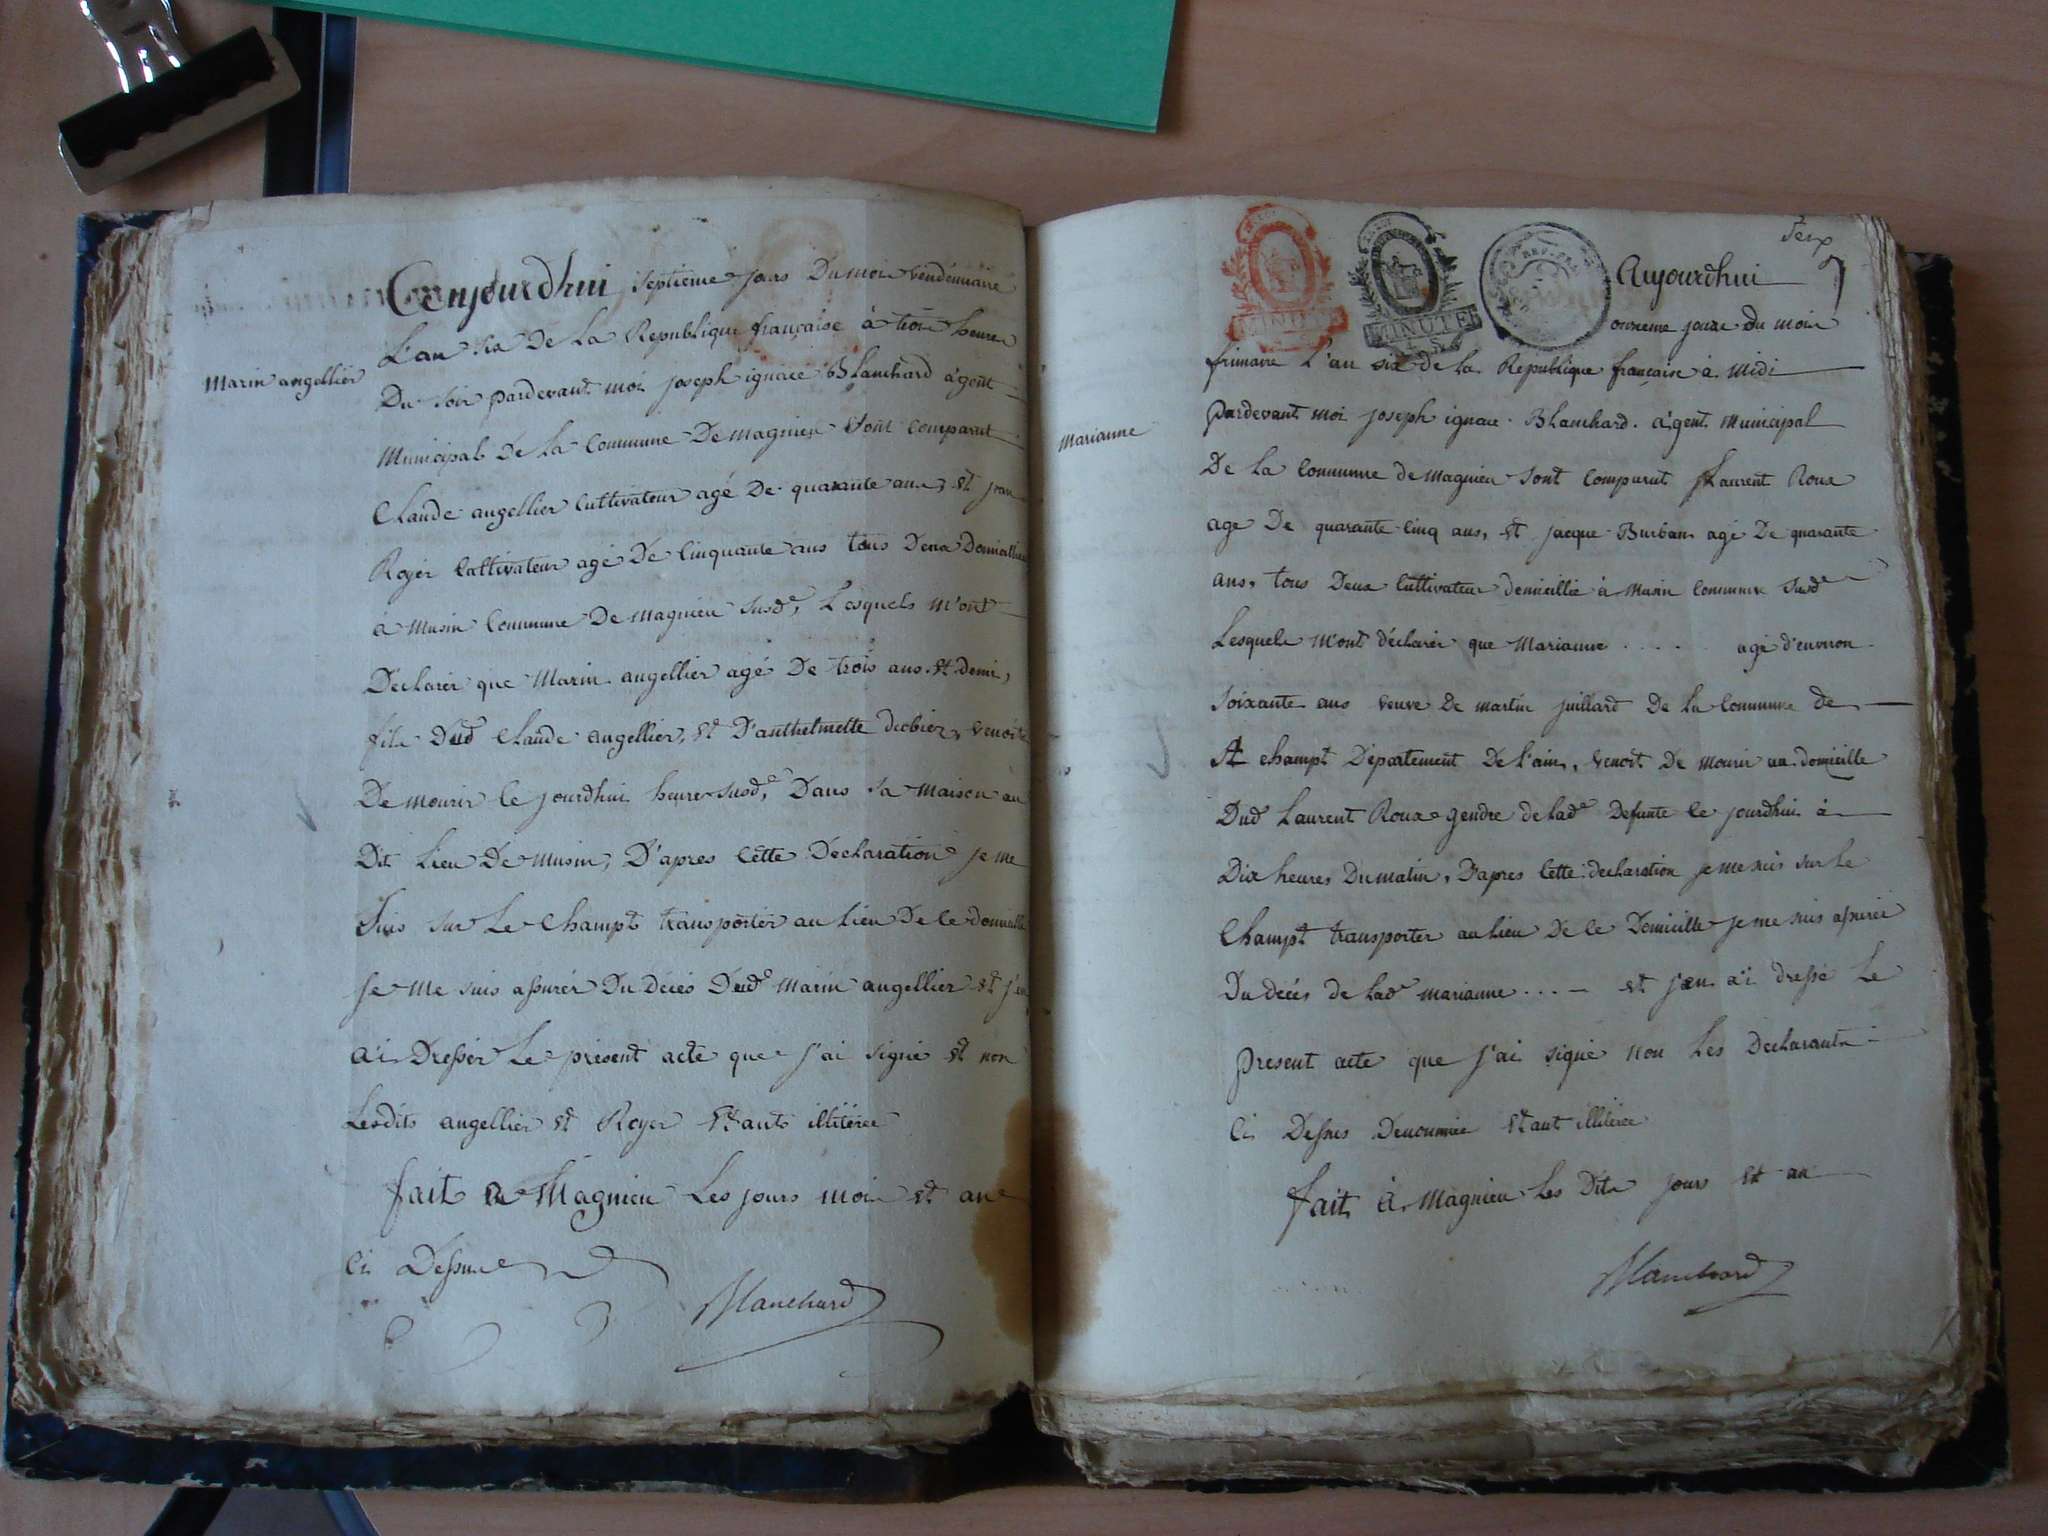 Marin angellier
Cejourdhui septieme jours Du mois vendémiaire
L'an six De La Republique française à trois heures
Du soir pardevant moi joseph ignace Blanchard agent
Municipal De La Commune De magnieu Sont comparut
Claude angellier Cultivateur agé De quarante ans, et jean
Royer Cultivateur agé De Cinquante ans tous Deux Domicilliés
à Musin Commune De magnieu susde, Lesquels m'ont
Déclarér que Marin angellier agé De trois ans et demi,
fils Dud Claude angellier, et D'anthelmette venoit
De mourir le jourdhui heure susde, Dans sa maison au
Dit Lieu De Musin, D'apres Cette Declaration je me
suis sur Le Champt transportér au Lieu De Ce domicille
je me suis assurér Du décés Dud marin angellier et j'en
ai Dressér Le présent acte que j'ai signé et non
Lesdits angellier et Royer etants illitérée
fait a Magnieu Les jours mois et an
Ci Dessus
Blanchard
MINUTE
MINUTE
REP. FRA
Marianne
Aujourdhui
onzieme jours du mois
frimaire L'an six de La Republique française à Midi
Pardevant moi joseph ignace Blanchard agent Municipal
De La Commune de Magnieu sont comparut Laurent Roux
age De quarante cinq ans, et jacque Burban agé De quarante
ans, tous Deux Cultivateur demicillié à Musin Commune susde
Lesquels m'ont déclarér que Marianne . . . . . agé d'environ
soixante ans veuve De martin juillard De La Commune de
St champt Département De l'ain, venoit De mourir au domicille
Dud Laurent Roux gendre de lade Defunte le jourdhui à
Dix heures Du matin, D'apres Cette declaration je me suis sur Le
Champt transporter au Lieu De Ce Domicille je me suis assurér
Du décés de lade marianne . . . et j'en ai dressé Le
présent acte que j'ai signé non Les Declarants
Ci Dessus Denommée etant illitérée
fait à Magnieu Les Dits jours et an
Blanchard